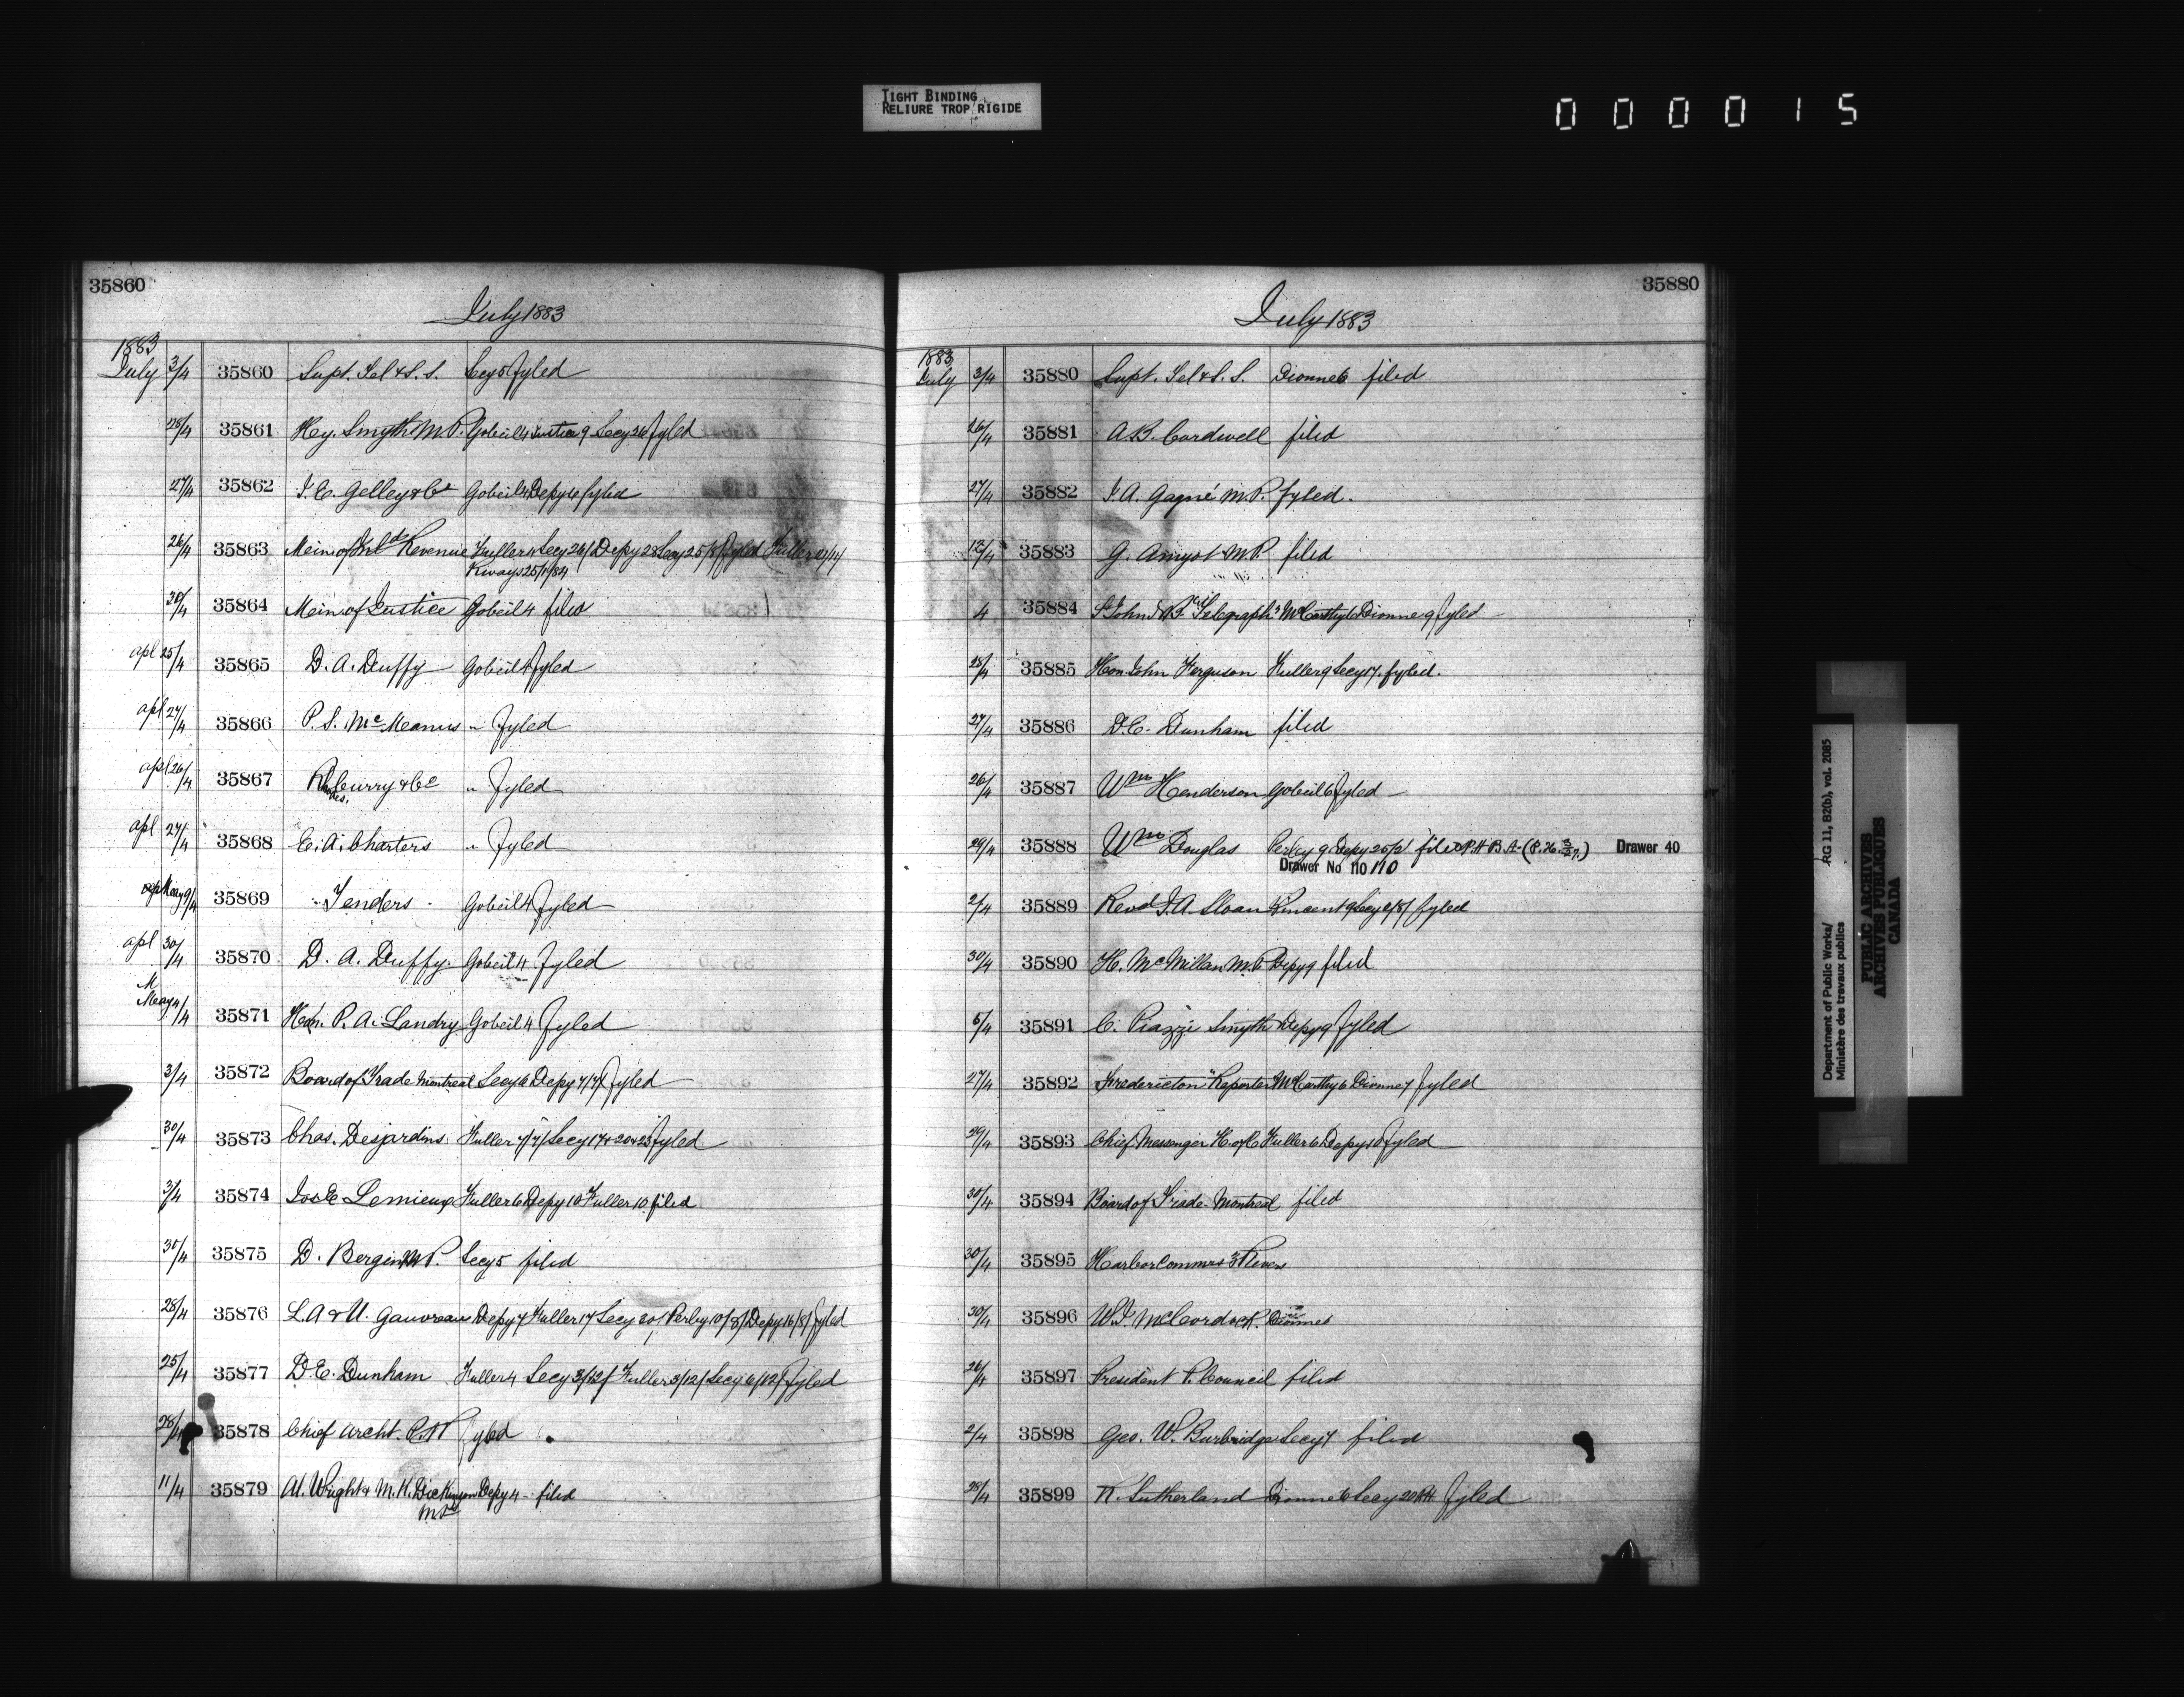 TIGHT BINDING
RELIURE TROP RIGIDE
000015
35860
July 1883
1883
July 3/4 35860 Supt. Tel & S. S. Secy 5 fyled
28/4 35861 Hy. Smyth M.P. Gobeil 4 Justice 9 Secy 26 fyled
27/4 35862 J. E. Gelley & Co Gobeil 4 Depy 4 fyled
26/4 35863 Mein of Inld Revenue Fuller 4 Secy 26/ Depy 28 Secy 25/8/ fyled
Kways 25/1/84
30/4 35864 Mein of Justice Gobeil 4 filed
apl 25/4 35865 D. A. Duffy Gobeil 4 fyled
apl 27/4 35866 P. S. McMeanus " fyled
apl 26/4 35867 Rhodes Curry & Co " fyled
apl 27/4 35868 E. A. Charters " fyled
May 9/4 35869 Tenders Gobeil 4 fyled
apl 30/4 35870 D. A. Duffy Gobeil 4 fyled
M
May 4/4 35871 Hon. P. A. Landry Gobeil 4 fyled
3/4 35872 Board of Trade Montreal Secy 6 Depy 7/7/ fyled
30/4 35873 Chas. Desjardins Fuller 7/7/ Secy 17 & 20 & 23 fyled
3/4 35874 Jos E Lemieux Fuller 6 Depy 10 Fuller 10 filed
35875 D. Bergin M.P. Secy 5 filed
28/4 35876 L. A & U. Gauvreau Depy 7 Fuller 17 Secy 20/ Perley 10/8/ Depy 16/8/ fyled
25/4 35877 D. E. Dunham Fuller 4 Secy 3/12/ Fuller 3/12/ Secy 6/12/ fyled
28/4 35878 Chief Archt. fyled
11/4 35879 Al. Wright & M. K. Dickinson Depy 4 filed
M.Ps
35880
July 1883
1883
July 3/4 35880 Supt. Tel & S. S. Dionne 6 filed
26/4 35881 A. B. Cardwell filed
27/4 35882 J. A. Gagné M.P. fyled.
12/4 35883 G. Amyot M.P. filed
4 35884 St John N.B. Telegraph McCarthy 6 Dionne 9 fyled
28/4 35885 Hon. John Ferguson Fuller 9 Secy 17. fyled.
27/4 35886 D. E. Dunham filed
26/4 35887 Wm Henderson Gobeil 6 fyled
29/4 35888 Wm Douglas Perley 9 Depy filed P.H.B.A. Drawer 40
Drawer No 110 110
2/4 35889 Revd J. A. Sloan Kincent 9 Secy 2/8/ fyled
30/4 35890 H. McMillan M.P. Depy 9 filed
5/4 35891 C. Piazzi Smyth Depy 9 fyled
27/4 35892 Fredericton "Reporter" McCarthy 6 Dionne 7 fyled
29/4 35893 Chief Messenger H. of C Fuller 6 Depy 10 fyled
30/4 35894 Board of Trade Montreal filed
30/4 35895 Harbor Commrs 3 Rivers
30/4 35896 Dionne 6
26/4 35897 President P. Council filed
2/4 35898 Geo. W. Burbridge Secy 7 filed
28/4 35899 K. Sutherland Dionne 6 Secy 20 fyled
Department of Public Works/ RG 11, B2(b), vol. 2085
Ministère des travaux publics
PUBLIC ARCHIVES
ARCHIVES PUBLIQUES
CANADA